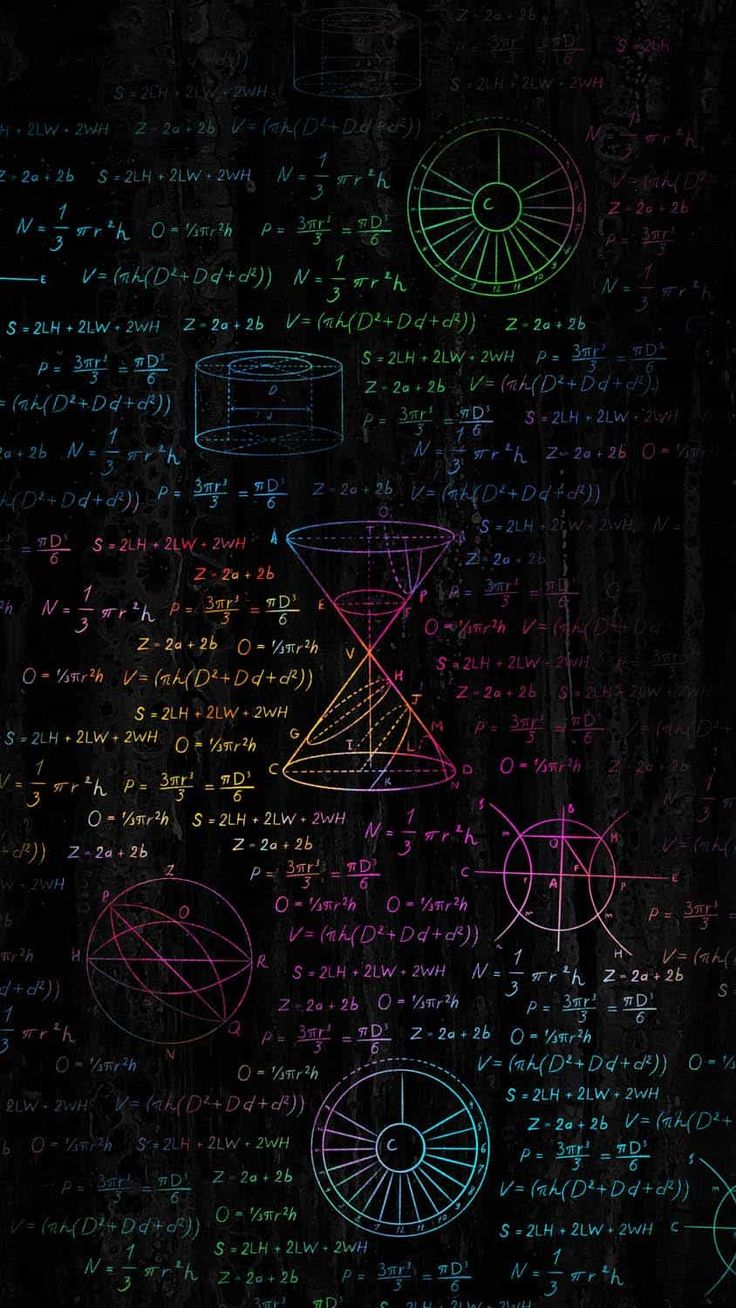 Z = 2a + 2b
P = 3πr³/3 = πD³/6 S = 2LH
S = 2LH + 2LW + 2WH S = 2LH + 2LW + 2WH
H + 2LW + 2WH Z = 2a + 2b V = (πh(D² + Dd + d²)) N = 1/3 πr²h
Z = 2a + 2b S = 2LH + 2LW + 2WH N = 1/3 πr²h V = (πh(D²
Z = 2a + 2b
N = 1/3 πr²h O = ⅓πr²h P = 3πr³/3 = πD³/6 C P = 3πr³/3
E V = (πh(D² + Dd + d²)) N = 1/3 πr²h N = 1/3 πr²h
12
S = 2LH + 2LW + 2WH Z = 2a + 2b V = (πh(D² + Dd + d²)) Z = 2a + 2b
P = 3πr³/3 = πD³/6 S = 2LH + 2LW + 2WH P = 3πr³/3 = πD³/6
D Z = 2a + 2b V = (πh(D² + Dd + d²))
= (πh(D² + Dd + d²)) d P = 3πr³/3 = πD³/6 S = 2LH + 2LW + 2WH
2a + 2b N = 1/3 πr²h N = 1/3 πr²h Z = 2a + 2b O = ⅓πr
h(D² + Dd + d²)) P = 3πr³/3 = πD³/6 Z = 2a + 2b V = (πh(D² + Dd + d²))
O
A T S = 2LH + 2LW + 2WH N =
= πD³/6 S = 2LH + 2LW + 2WH
Z = 2a + 2b Z = 2a + 2b
²h N = 1/3 πr²h P = 3πr³/3 = πD³/6 E F P P = 3πr³/3 = πD³/6
O = ⅓πr²h V = (πh(D² + Dd
Z = 2a + 2b O = ⅓πr²h V
S = 2LH + 2LW + 2WH
O = ⅓πr²h V = (πh(D² + Dd + d²)) H
J Z = 2a + 2b S = 2LH + 2LW
S = 2LH + 2LW + 2WH G M P = 3πr³/3 = πD³/6
S = 2LH + 2LW + 2WH O = ⅓πr²h I L
C K N D O = ⅓πr²h Z = 2a + 2b
V = 1/3 πr²h P = 3πr³/3 = πD³/6
O = ⅓πr²h S = 2LH + 2LW + 2WH S B
N = 1/3 πr²h m Q M
+ d²)) Z = 2a + 2b Z = 2a + 2b
P = 3πr³/3 = πD³/6 C A F P E
Z
P O O = ⅓πr²h O = ⅓πr²h m m P = 3πr³/3
V = (πh(D² + Dd + d²))
H R H V = (πh(D²
πr²h S = 2LH + 2LW + 2WH N = 1/3 πr²h Z = 2a + 2b
+ d²)) Z = 2a + 2b O = ⅓πr²h P = 3πr³/3 = πD³/6 S
1/3 πr²h Q P = 3πr³/3 = πD³/6 Z = 2a + 2b O = ⅓πr²h
N
O = ⅓πr²h O = ⅓πr²h V = (πh(D² + Dd + d²)) O = ⅓
2LW + 2WH V = (πh(D² + Dd + d²)) S = 2LH + 2LW + 2WH
Z = 2a + 2b V = (πh(D² +
b O = ⅓πr²h S = 2LH + 2LW + 2WH C P = 3πr³/3 = πD³/6
P = 3πr³/3 = πD³/6 Z = 2a + 2b V = (πh(D² + Dd + d²))
V = (πh(D² + Dd + d²)) O = ⅓πr²h 12 S = 2LH + 2LW + 2WH C
S = 2LH + 2LW + 2WH
N = 1/3 πr²h Z = 2a + 2b P = 3πr³/3 = πD³/6 N = 1/3 πr²h